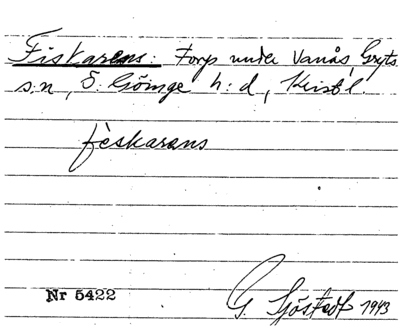 Fiskarens: Torp under Vanås, Gryts
s:n, Ö. Göinge h:d, Kristl.
fèskarens
Nr 5422
G. Sjöstedt 1943